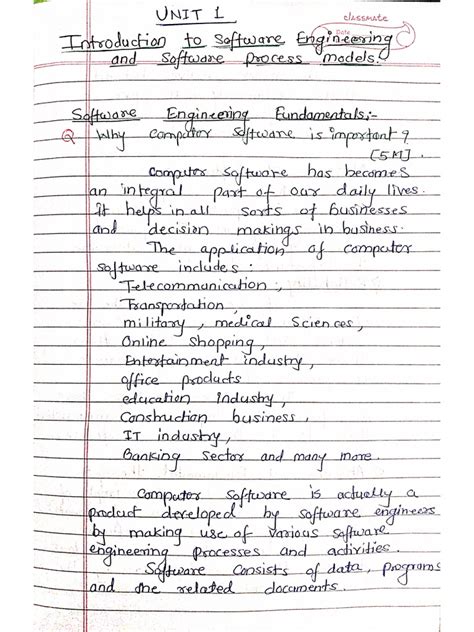 UNIT 1
classmate
Date
Introduction to Software Engineering
and Software Process models.
Software Engineering Fundamentals:-
Q Why Computor software is important?
[5M].
Computor software has becomes
an integral part of our daily lives.
It helps in all sorts of businesses
and decision makings in business.
The application of computor
software includes:
Telecommunication,
Transportation,
military, medical Sciences,
Online Shopping,
Entertainment industry,
office products
education Industry,
Construction business,
IT industry,
Banking Sector and many more.
Computor software is actually a
product developed by software engineers
by making use of various software
engineering processes and activities.
Software consists of data, programs
and the related documents.